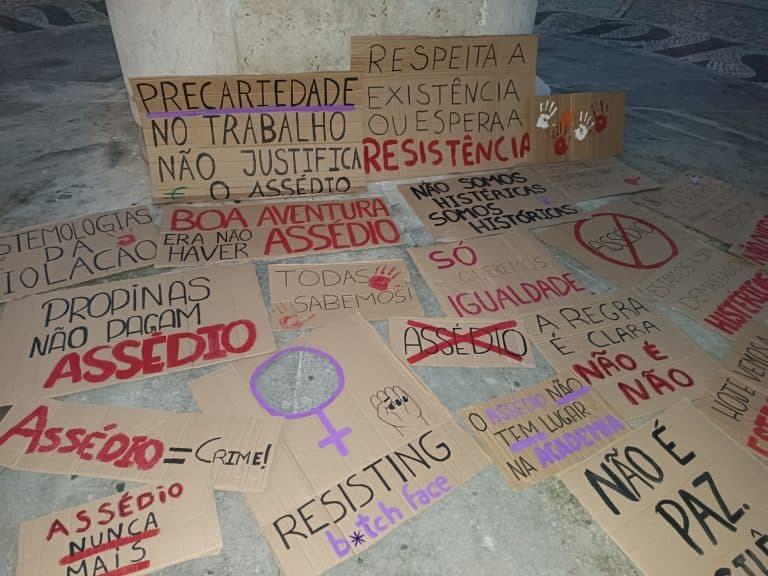 PRECARIEDADE
NO TRABALHO
NÃO JUSTIFICA
O ASSÉDIO
RESPEITA A
EXISTÊNCIA
OU ESPERA A
RESISTÊNCIA
NÃO SOMOS
HISTÉRICAS
SOMOS
HISTÓRICAS
STEMOLOGIAS
DA
VIOLAÇÃO
BOA AVENTURA
ERA NÃO
HAVER ASSÉDIO
SÓ
QUEREMOS
IGUALDADE
ASSÉDIO
PROPINAS
NÃO PAGAM
ASSÉDIO
TODAS
SABEMOS!
ASSÉDIO
A REGRA
É CLARA
NÃO É
NÃO
ASSÉDIO = CRIME!
RESISTING
b*tch face
O ASSÉDIO NÃO
TEM LUGAR
NA ACADEMIA
NÃO É
PAZ.
ASSÉDIO
NUNCA
MAIS